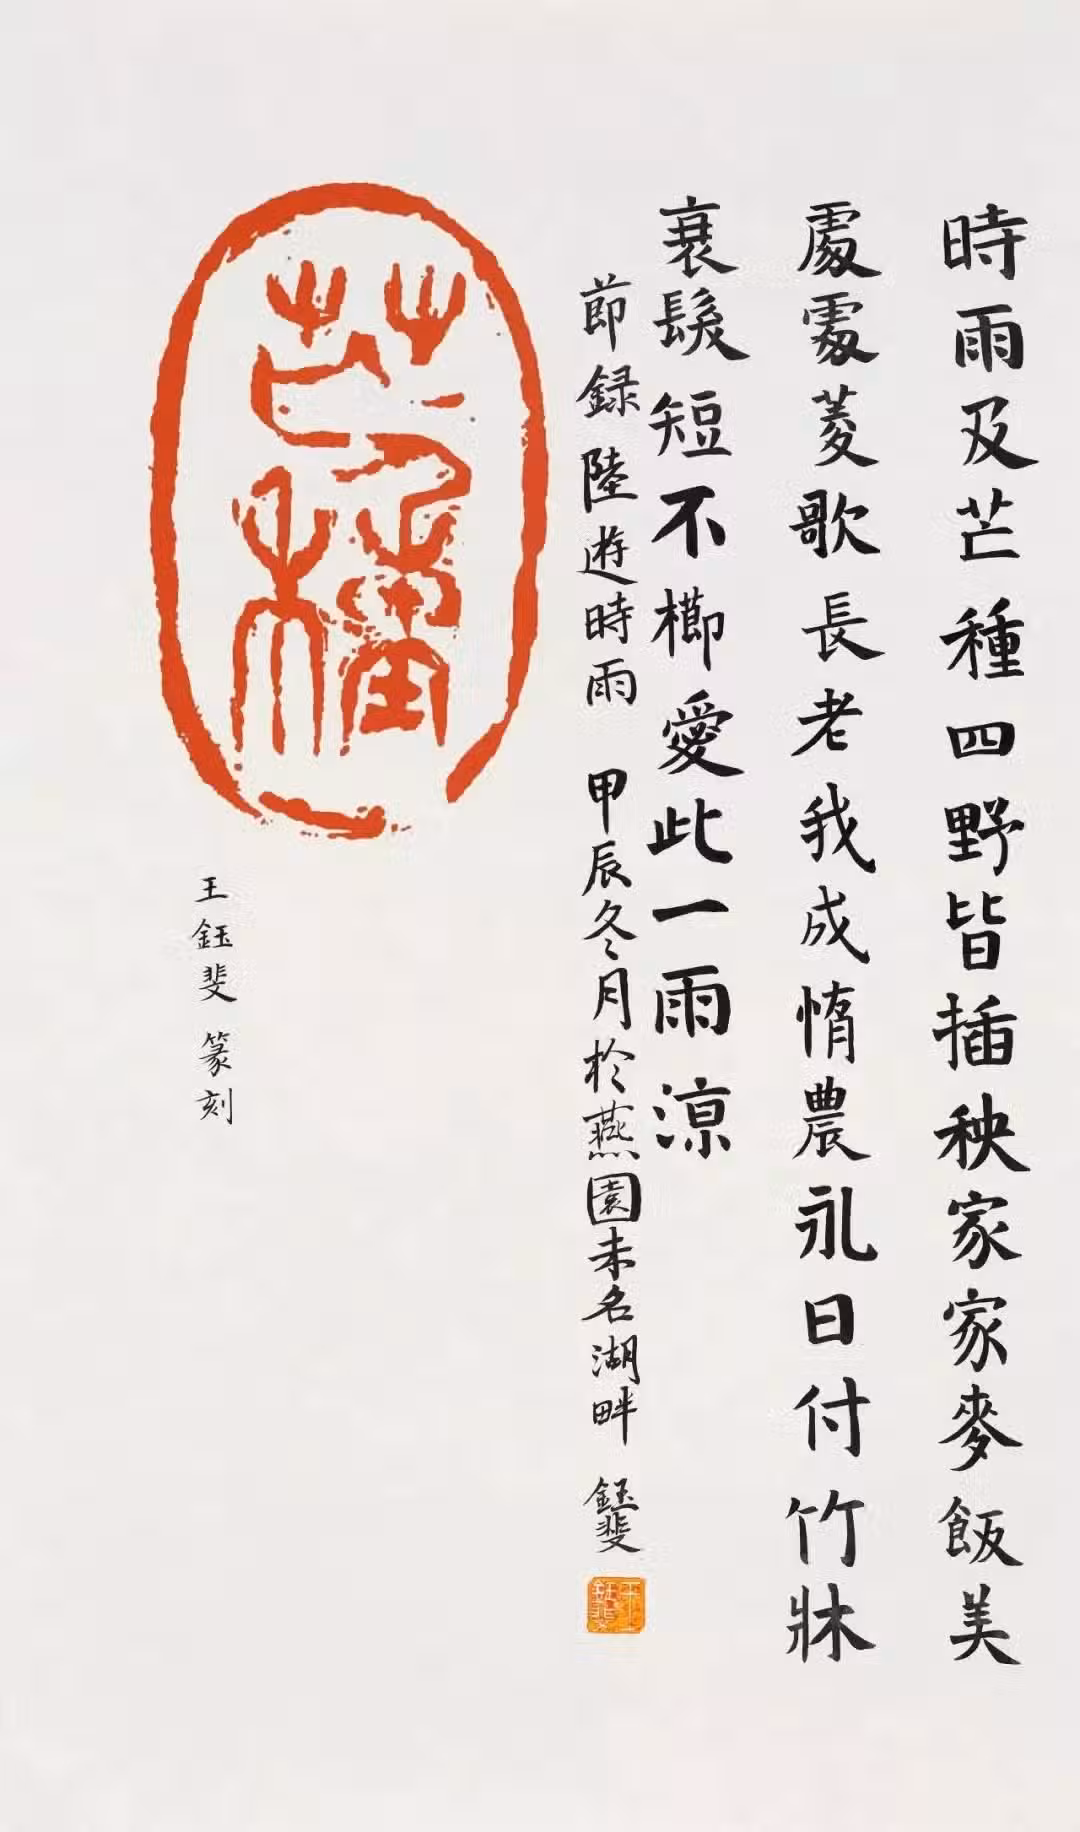 時雨及芒種四野皆插秧家家麥飯美
處處菱歌長老我成惰農永日付竹牀
衰髮短不櫛愛此一雨涼
節録陸遊時雨 甲辰冬月於燕園未名湖畔 鈺斐
王鈺斐
芒種
王鈺斐 篆刻